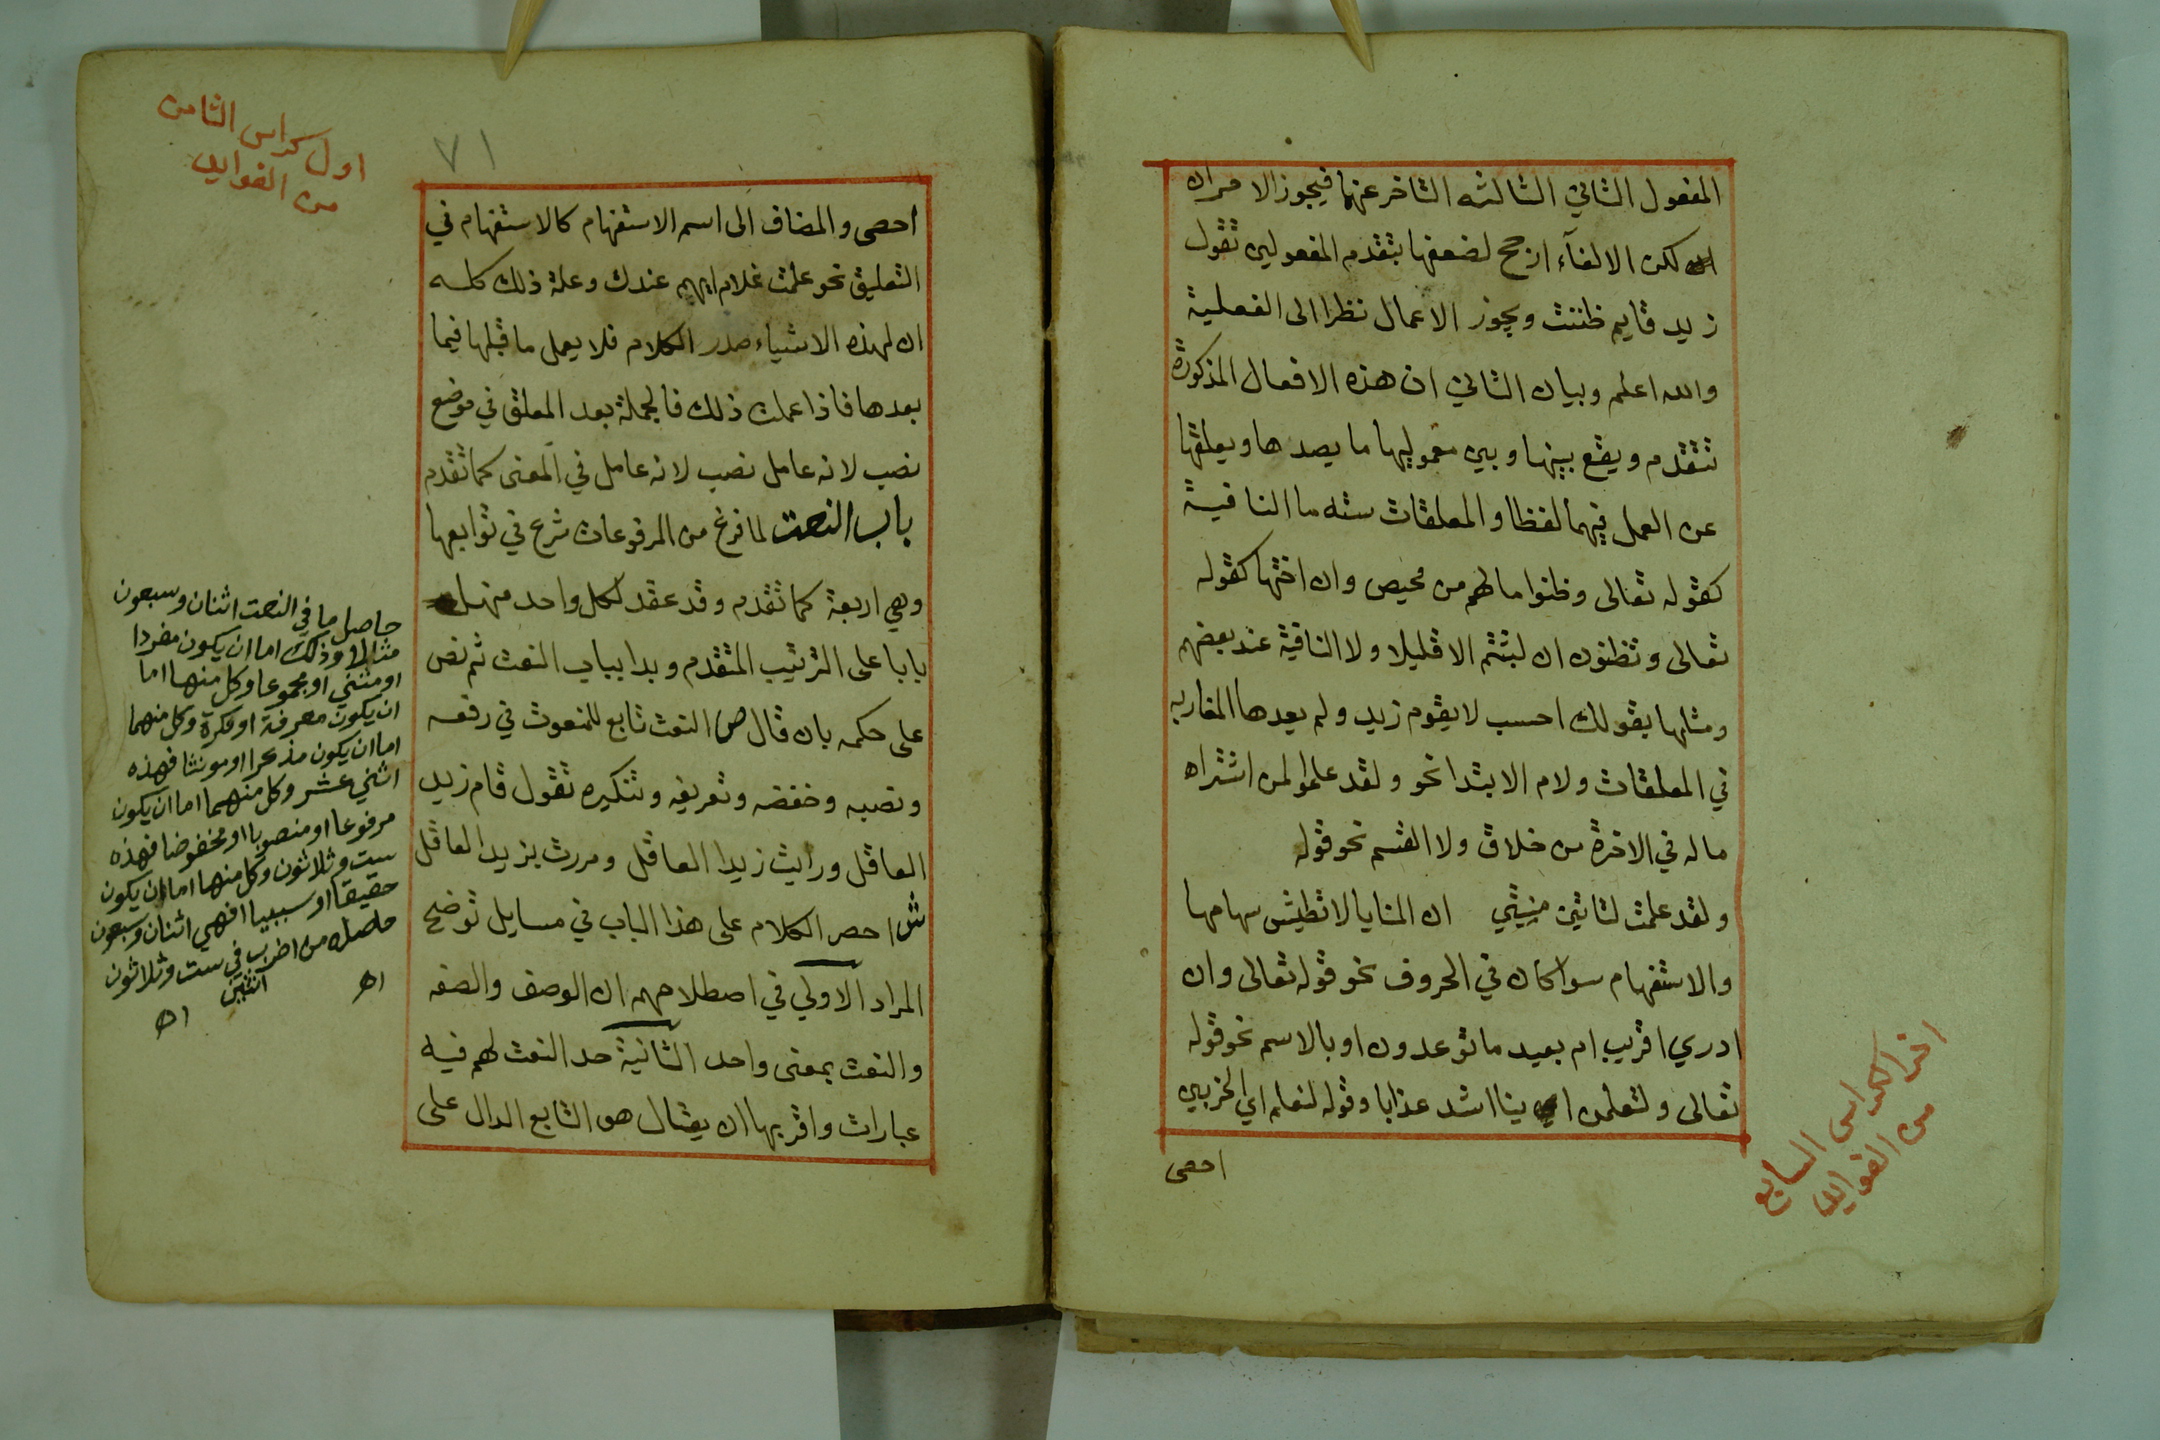 المفعول الثاني الثالثه التاخر عنهما فيجوز الامران
لكن الالغآء ارجح لضعفها بتقدم المفعولين تقول
زيد قايم ظننت ويجوز الاعمال نظرا الى الفعلية
والله اعلم وبيان الثاني ان هذه الافعال المذكورة
تتقدم ويقع بينها وبين معموليها ما يصدها ويعلقها
عن العمل فيهما لفظا والمعلقات سته ما النافية
كقوله تعالى وظنوا مالهم من محيص وان اختها كقوله
تعالى وتظنون ان لبثتم الا قليلا ولا النافية عند بعضهم
ومثلها بقولك احسب لا يقوم زيد ولم يعدها المغاربه
في المعلقات ولام الابتدا نحو ولقد علموا لمن اشتراه
ماله في الاخرة من خلاق ولا القسم نحو قوله
ولقد علمت لتاتين منيتي ان المنايا لا تطيش سهامها
والاستفهام سوا كان في الحروف نحو قوله تعالى وان
ادري اقريب ام بعيد ما توعدون او بالاسم نحو قوله
تعالى ولتعلمن اينا اشد عذابا وقوله لنعلم اي الحزبين
احصى
اخر الكراس السابع
من الفوايد
اول كراس الثامن
من الفوايد
٧١
احصى والمضاف الى اسم الاستفهام كالاستفهام في
التعليق نحو علمت غلام ايهم عندك وعلة ذلك كله
ان لهذه الاشياء صدر الكلام فلا يعمل ما قبلها فيما
بعدها فاذا عملت ذلك فالجملة بعد المعلق في موضع
نصب لانه عامل نصب لانه عامل في المعنى كما تقدم
باب النعت لما فرغ من المرفوعات شرع في توابعها
وهي اربعة كما تقدم وقد عقد لكل واحد منها
بابا على الترتيب المتقدم وبدا بباب النعت ثم نص
على حكمه بان قال ص النعت تابع للمنعوت في رفعه
ونصبه وخفضه وتعريفه وتنكيره تقول قام زيد
العاقل ورايت زيدا العاقل ومررت بزيد العاقل
ش احصر الكلام على هذا الباب في مسايل توضح
المراد الاولي في اصطلاحهم ان الوصف والصفه
والنعت بمعنى واحد الثانية حد النعت لهم فيه
عبارات واقربها ان يقال هو التابع الدال على
حاصل ما في النعت اثنان وسبعون
مثالا وذلك اما ان يكون مفردا
او مثني او مجموعا وكل منها اما
ان يكون معرفة او نكرة وكل منهما
اما ان يكون مذكرا او مونثا فهذه
اثني عشر وكل منهما اما ان يكون
مرفوعا او منصوبا او مخفوضا فهذه
ست وثلاثون وكل منها اما ان يكون
حقيقا او سببيا افهي اثنان وسبعون
حاصله من اضرب في ست وثلاثون
اثنين
اه
اه